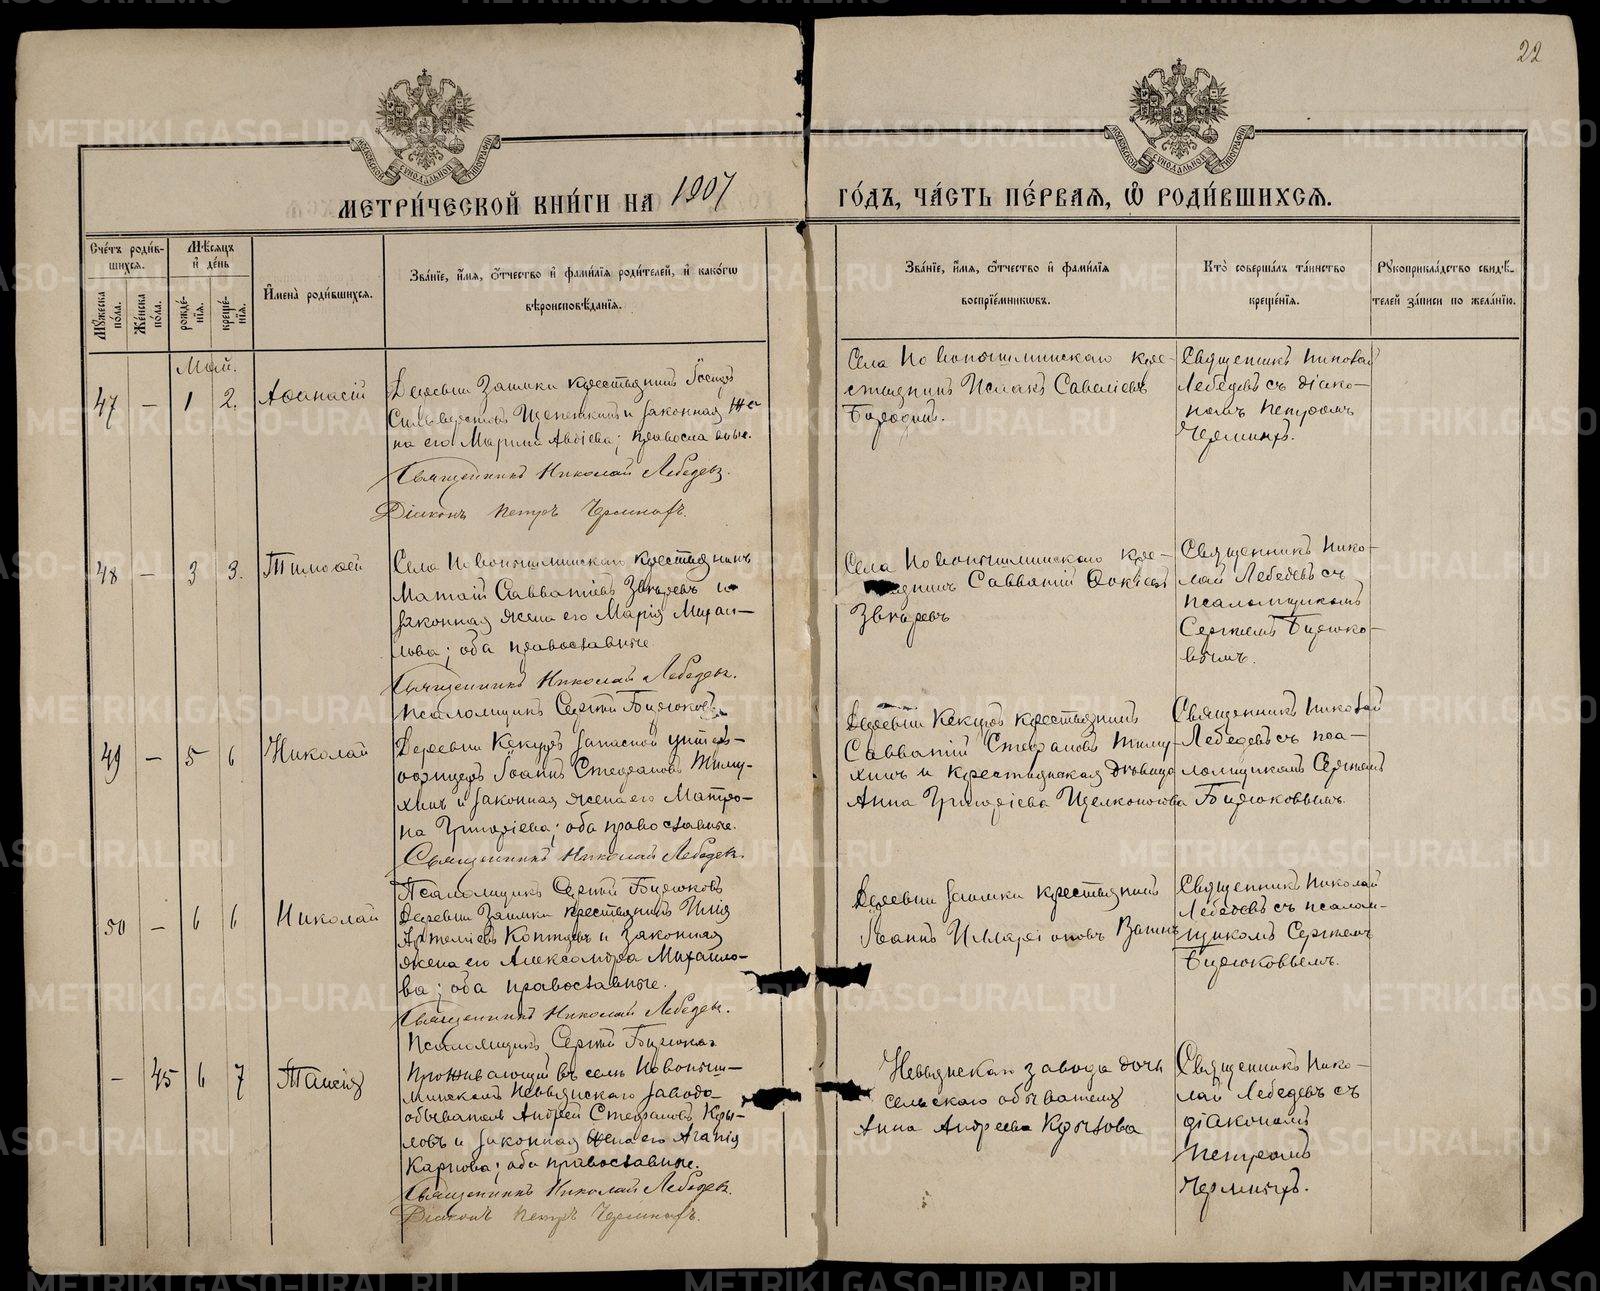 22
МЕТРИ́ЧЕСКОЙ КНИ́ГИ НА 1907
ГО́ДЪ, ЧА́СТЬ ПЕ́РВАЯ, Ѡ҆ РОДИ́ВШИХСЯ.
Сче́тъ роди́в-
шихся.
Мꙋжеска по́ла.
Же́нска по́ла.
Мѣсяцъ и҆ де́нь
рожде́-
нїя.
креще́-
нїя.
И҆мена̀ роди́вшихся.
Зва́нїе, и҆́мя, ѻ҆́тчество и҆ фами́лїя роди́телей, и҆ како́гѡ
вѣроисповѣ́данїя.
Зва́нїе, и҆́мя, ѻ҆́тчество и҆ фами́лїя
воспрїе́мникѡвъ.
Кто̀ соверша́лъ та́инство
креще́нїя.
Рꙋкоприкла́дство свидѣ́-
телей за́писи по жела́нїю.
Май.
47 — 1 2. Аѳанасій
Деревни Заимки крестьянинъ Іосифъ
Сильверстовъ Щепеткинъ и законная же-
на его Марина Авдіева; православные.
Священникъ Николай Лебедевъ.
Діаконъ Петръ Чермныхъ.
Села Новопышминскаго кре-
стьянинъ Исаакъ Савеліевъ
Бородинъ.
Священникъ Николай
Лебедевъ съ діако-
номъ Петромъ
Чермныхъ.
48 — 3 3. Тимоѳей
Села Новопышминскаго крестьянинъ
Матѳій Савватіевъ Звѣревъ и
законная жена его Марія Михаи-
лова; оба православные
Священникъ Николай Лебедевъ.
Псаломщикъ Сергій Бирюковъ
Села Новопышминскаго кре-
стьянинъ Савватій
Звѣревъ
Священникъ Нико-
лай Лебедевъ съ
псаломщикомъ
Сергіемъ Бирюко-
вымъ.
49 — 5 6 Николай
Деревни Кекуръ запасной унтеръ-
офицеръ Іоаннъ Стефановъ Тиму-
хинъ и законная жена его Матро-
на Григоріева; оба православные.
Священникъ Николай Лебедевъ.
Псаломщикъ Сергій Бирюковъ
Деревни Кекуръ крестьянинъ
Савватій Стефановъ Тиму-
хинъ и крестьянская дѣвица
Анна Григоріева Щелконогова
Священникъ Николай
Лебедевъ съ пса-
ломщикомъ Сергіемъ
Бирюковымъ.
50 — 6 6 Николай
Деревни Заимки крестьянинъ Илія
Артеміевъ Коптяевъ и законная
жена его Александра Михайло-
ва; оба православные.
Священникъ Николай Лебедевъ.
Псаломщикъ Сергій Бирюковъ
Деревни Заимки крестьянинъ
Іоаннъ Илларіоновъ
Священникъ Николай
Лебедевъ съ псалом-
щикомъ Сергіемъ
Бирюковымъ.
— 45 6 7 Таисія
Проживающій въ селѣ Новопыш-
минскомъ Невьянскаго завода
обыватель Андрей Стефановъ Кры-
ловъ и законная жена его Агапія
Карпова; оба православные.
Священникъ Николай Лебедевъ.
Діаконъ Петръ Чермныхъ.
Невьянскаго завода дочь
сельскаго обывателя
Анна Андреева Крылова
Священникъ Нико-
лай Лебедевъ съ
діакономъ
Петромъ
Чермныхъ.
METRIKI.GASO-URAL.RU